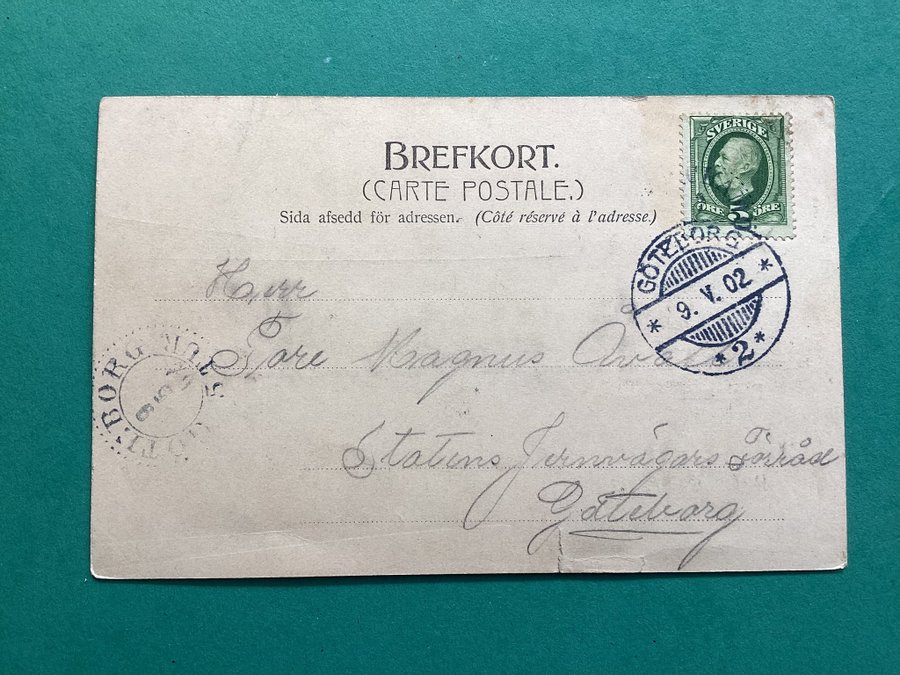 BREFKORT.
(CARTE POSTALE.)
Sida afsedd för adressen. (Côté réservé à l'adresse.)
SVERIGE
5
ÖRE ÖRE
GÖTEBORG
9. V. 02
* 2 *
Herr
Tore Magnus
Statens Jernvägars Förråd
Göteborg
GÖTEBORG